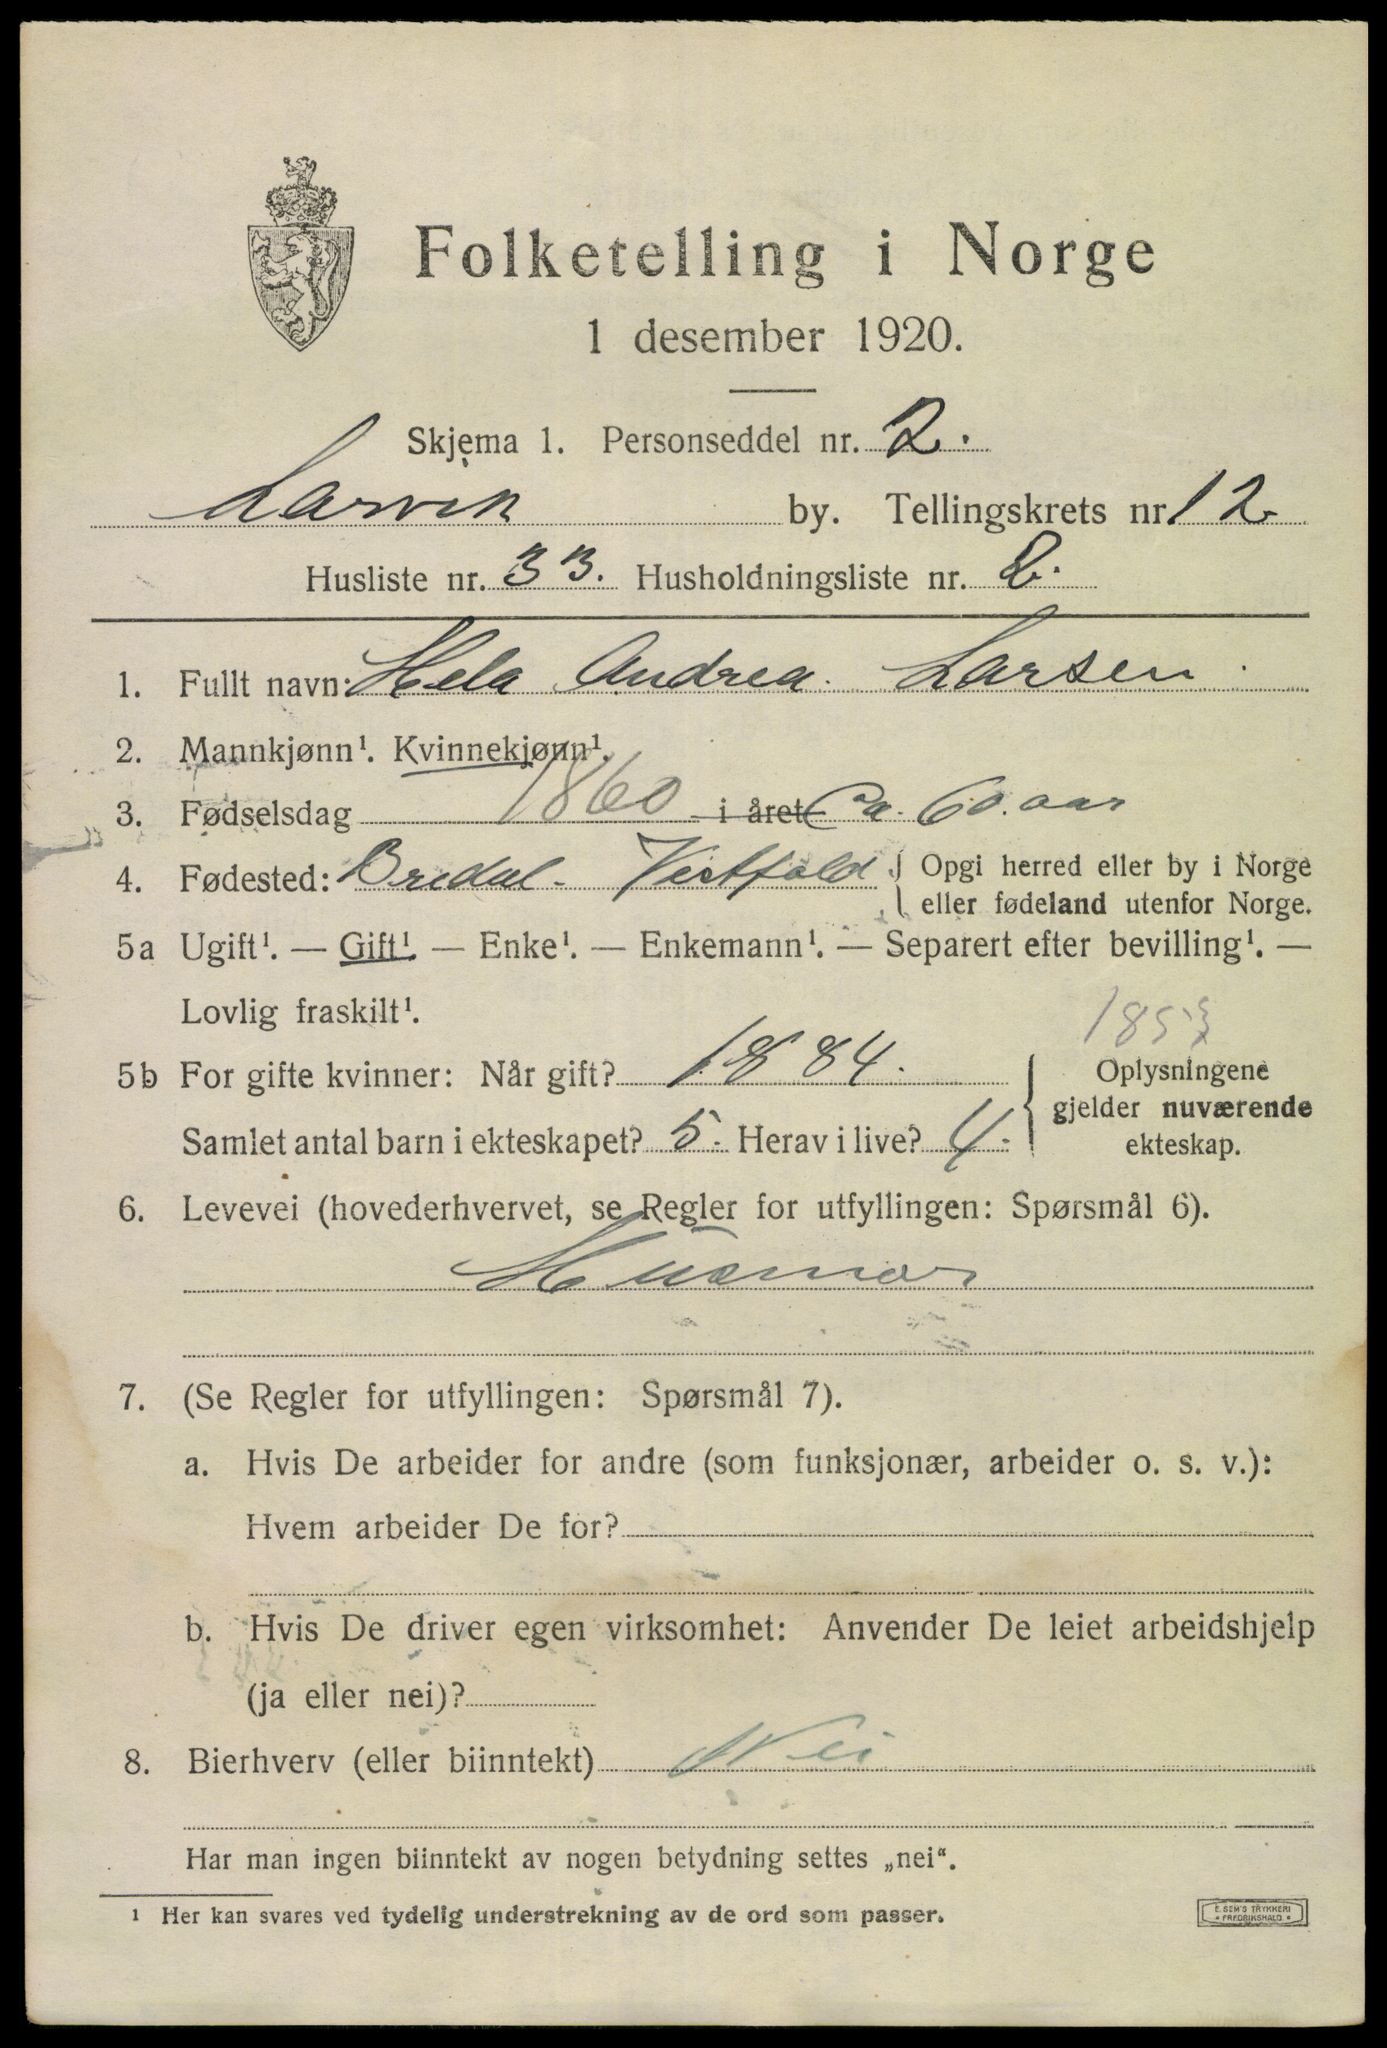 Folketelling i Norge
1 desember 1920.
Skjema 1. Personseddel nr. 2.
Larvik by. Tellingskrets nr 12.
Husliste nr. 33. Husholdningsliste nr. 2.
1. Fullt navn: Hela Andrea Larsen
2. Mannkjønn¹. Kvinnekjønn¹.
3. Fødselsdag 1860 i året Ca. 60. aar
4. Fødested: Vestfold { Opgi herred eller by i Norge
eller fødeland utenfor Norge.
5a Ugift¹. — Gift¹. — Enke¹. — Enkemann¹. — Separert efter bevilling¹. —
Lovlig fraskilt¹.
5b For gifte kvinner: Når gift? 1884. { Oplysningene
gjelder nuværende
ekteskap.
Samlet antal barn i ekteskapet? 5. Herav i live? 4.
6. Levevei (hovederhvervet, se Regler for utfyllingen: Spørsmål 6).
Husmor
7. (Se Regler for utfyllingen: Spørsmål 7).
a. Hvis De arbeider for andre (som funksjonær, arbeider o. s. v.):
Hvem arbeider De for?
b. Hvis De driver egen virksomhet: Anvender De leiet arbeidshjelp
(ja eller nei)?
8. Bierhverv (eller biinntekt) Nei
Har man ingen biinntekt av nogen betydning settes „nei“.
¹ Her kan svares ved tydelig understrekning av de ord som passer.
E. SEM'S TRYKKERI
FREDRIKSHALD